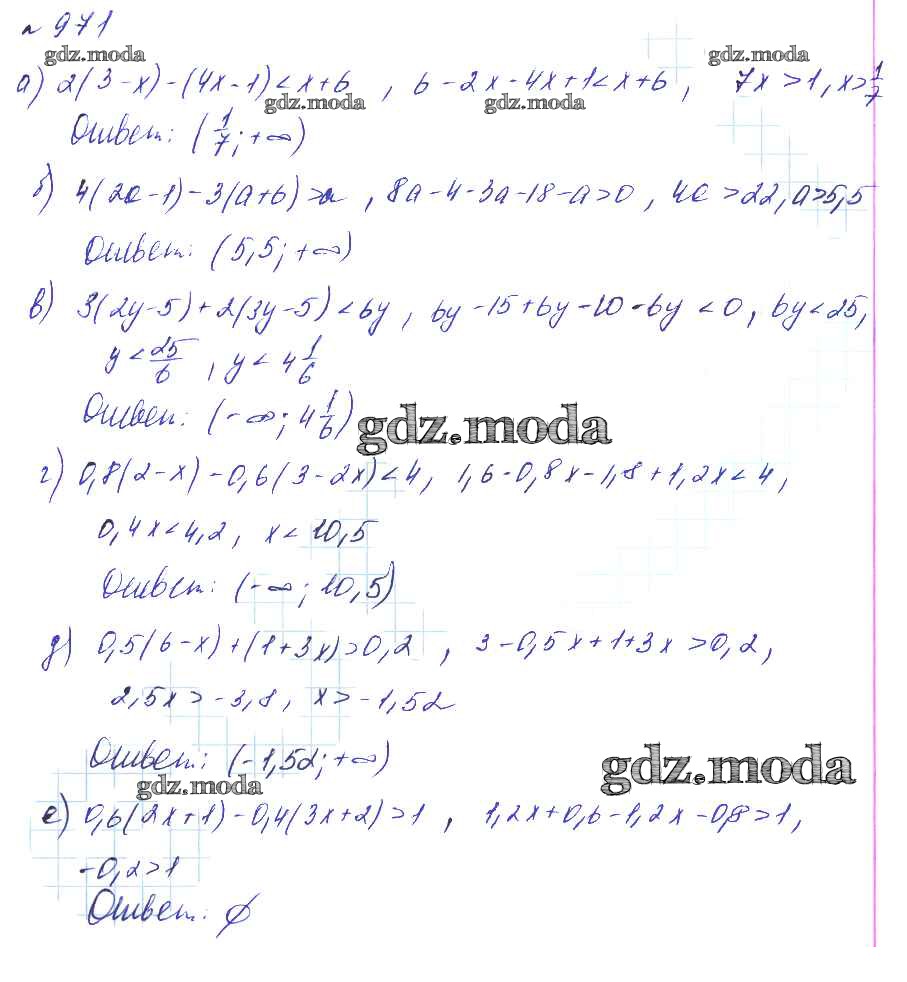 № 971
gdz.moda gdz.moda
а) 2(3-x)-(4x-1)<x+6 , 6-2x-4x+1<x+6 , 7x>1, x>1/7
gdz.moda gdz.moda
Ответ: (1/7; +∞)
б) 4(2a-1)-3(a+6)>a , 8a-4-3a-18-a>0 , 4a>22, a>5,5
Ответ: (5,5; +∞)
в) 3(2y-5)+2(3y-5)<6y , 6y-15+6y-10-6y<0 , 6y<25,
y<25/6 , y<4 1/6
Ответ: (-∞; 4 1/6)
gdz.moda
г) 0,8(2-x)-0,6(3-2x)<4, 1,6-0,8x-1,8+1,2x<4,
0,4x<4,2, x<10,5
Ответ: (-∞; 10,5)
д) 0,5(6-x)+(1+3x)>0,2 , 3-0,5x+1+3x>0,2,
2,5x>-3,8, x>-1,52
Ответ: (-1,52; +∞)
gdz.moda
gdz.moda
е) 0,6(2x+1)-0,4(3x+2)>1 , 1,2x+0,6-1,2x-0,8>1,
-0,2>1
Ответ: ∅